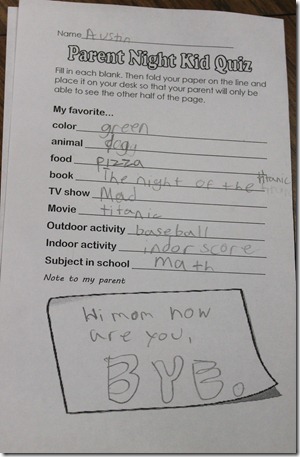 Name Austin
Parent Night Kid Quiz
Fill in each blank. Then fold your paper on the line and
place it on your desk so that your parent will only be
able to see the other half of the page.
My favorite...
color green
animal dogy
food pizza
book The night of the titanic
TV show Mad
Movie titanic
Outdoor activity baseball
Indoor activity indor score
Subject in school math
Note to my parent
Hi mom how
are you,
BYE.